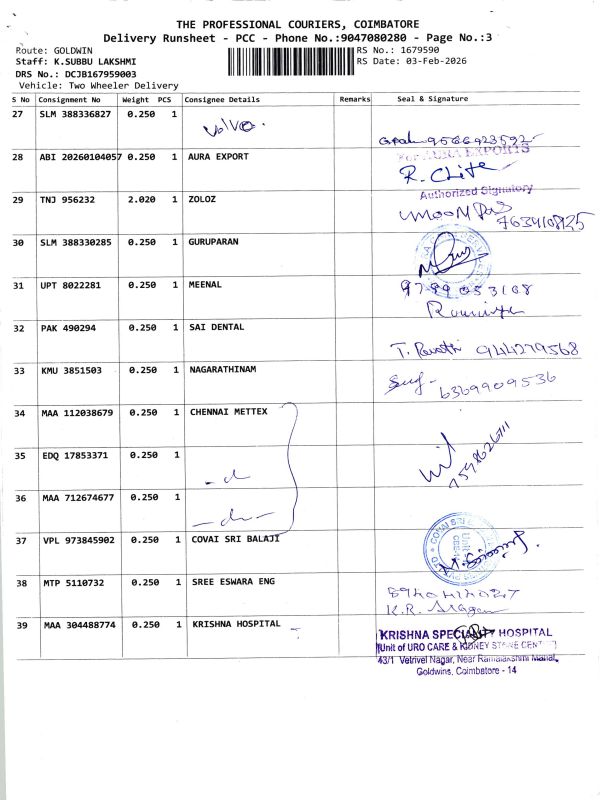 THE PROFESSIONAL COURIERS, COIMBATORE
Delivery Runsheet - PCC - Phone No.:9047080280 - Page No.:3
Route: GOLDWIN
RS No.: 1679590
Staff: K.SUBBU LAKSHMI
RS Date: 03-Feb-2026
DRS No.: DCJB167959003
Vehicle: Two Wheeler Delivery
S No Consignment No Weight PCS Consignee Details Remarks Seal & Signature
27 SLM 388336827 0.250 1 Volvo.
9566923592
28 ABI 20260104057 0.250 1 AURA EXPORT
For AURA EXPORTS
Authorized Signatory
29 TNJ 956232 2.020 1 ZOLOZ
30 SLM 388330285 0.250 1 GURUPARAN
31 UPT 8022281 0.250 1 MEENAL
9799053108
32 PAK 490294 0.250 1 SAI DENTAL
T. Revathi 944279568
33 KMU 3851503 0.250 1 NAGARATHINAM
6369909536
34 MAA 112038679 0.250 1 CHENNAI METTEX
35 EDQ 17853371 0.250 1
36 MAA 712674677 0.250 1
37 VPL 973845902 0.250 1 COVAI SRI BALAJI
38 MTP 5110732 0.250 1 SREE ESWARA ENG
39 MAA 304488774 0.250 1 KRISHNA HOSPITAL
KRISHNA SPECIALITY HOSPITAL
(Unit of URO CARE & KIDNEY STONE CENT
43/1 Vetrivel Nagar, Near Ramalakshmi Mahal,
Goldwins, Coimbatore - 14